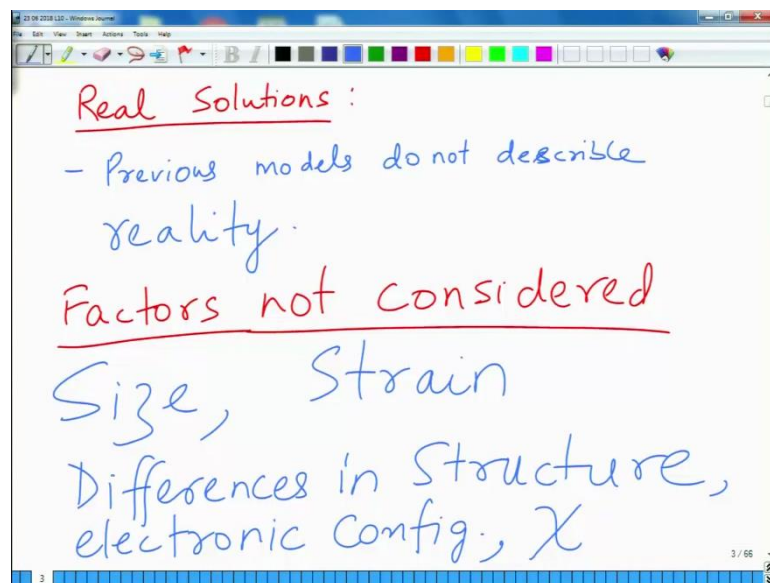 23 06 2018 L10 - Windows Journal
File Edit View Insert Actions Tools Help
Real Solutions :
- Previous models do not describle
reality.
Factors not considered
Size, Strain
Differences in Structure,
electronic Config., χ
3 / 66
3